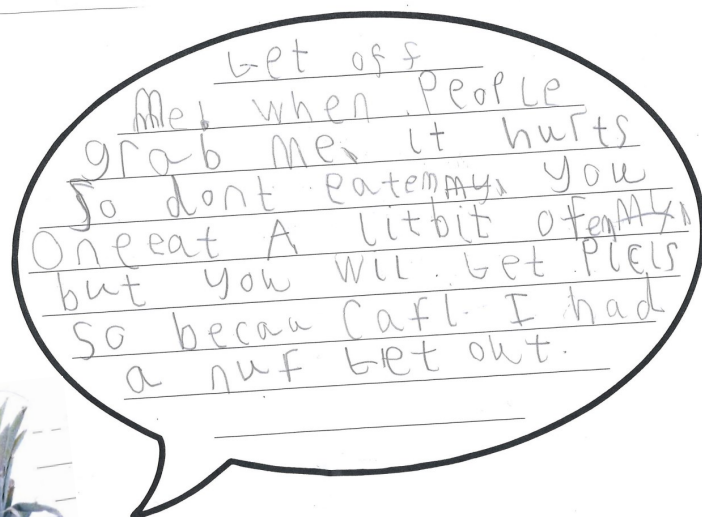 Get off
Me! when People
grab me, it hurts
So dont eatemmy, you
Oneeat A litbit of
but you wil. Get PicIs
so becaa Cafl. I had
a nuf Get out.